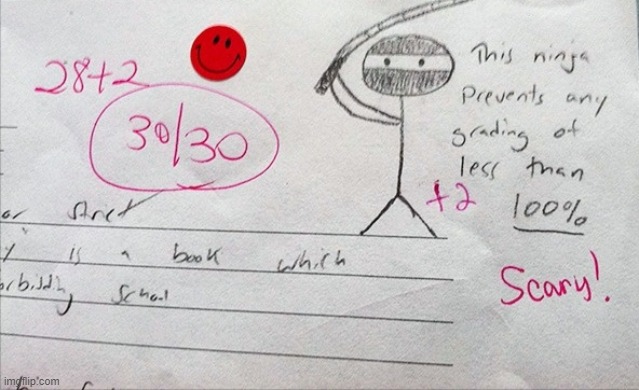 28+2
30/30
This ninja
Prevents any
grading of
less than
100%
+2
Scary!
or strict
y is a book which
School
imgflip.com